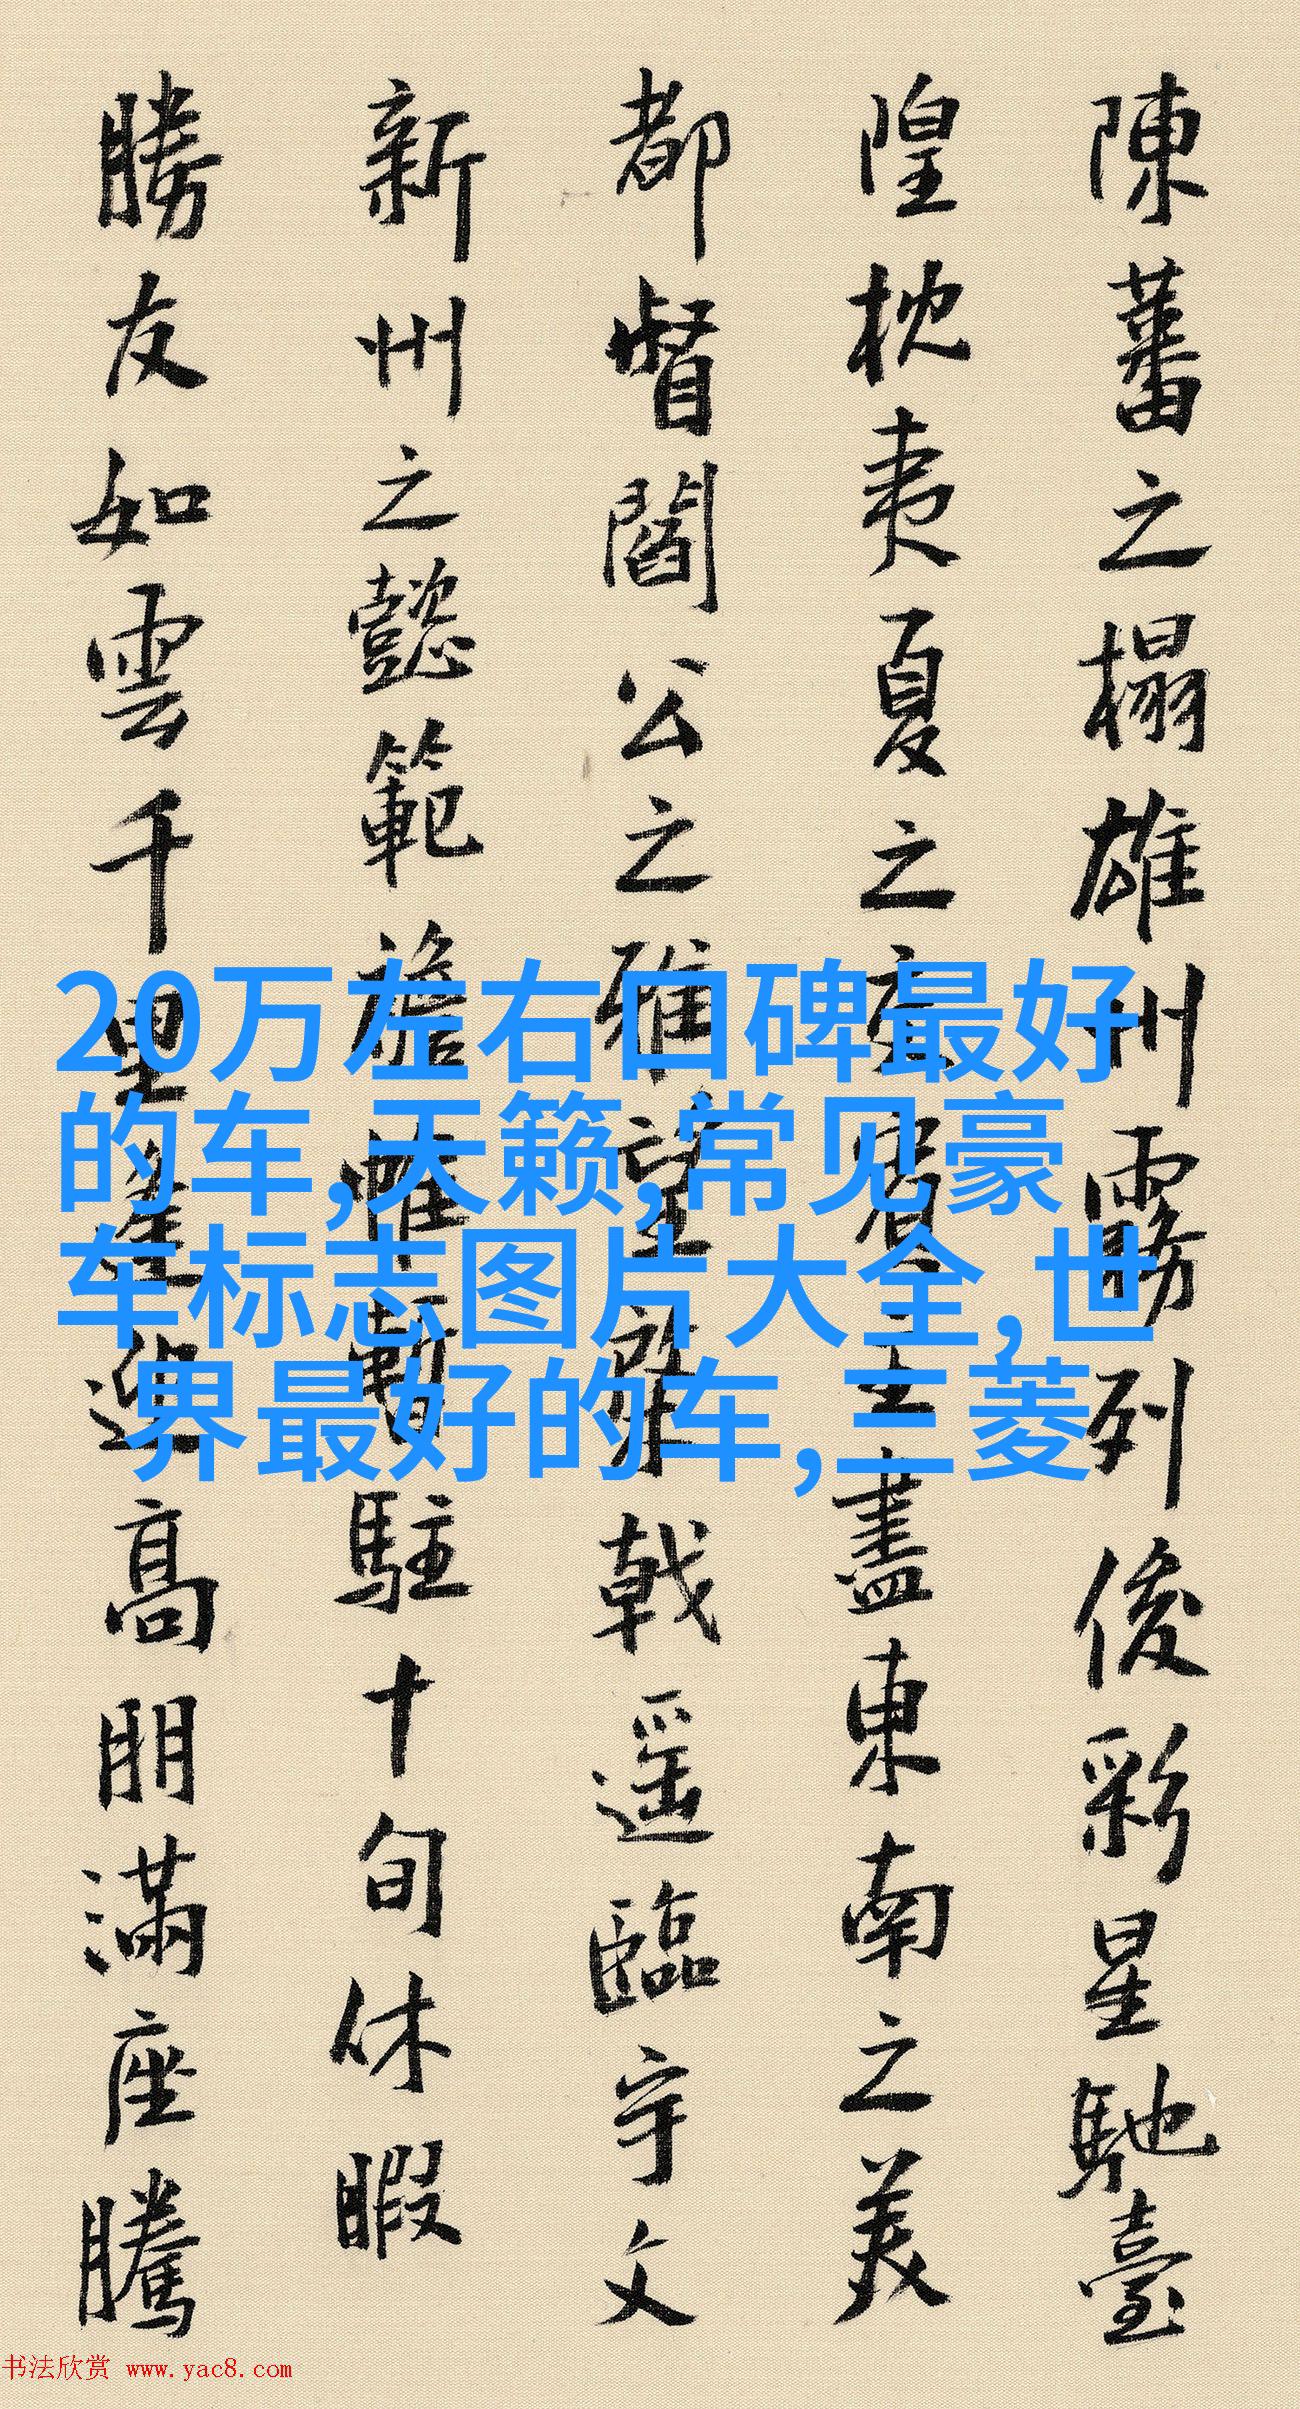 陳蕃之榻雄州霧列俊彩星馳臺
隍枕夷夏之交賓主盡東南之美
都督閻公之雅望棨戟遥臨宇文
新州之懿範襜帷暫駐十旬休暇
勝友如雲千里逢迎高朋滿座騰
20万左右口碑最好
的车,天籁,常见豪
车标志图片大全,世
界最好的车,三菱
书法欣赏 www.yac8.com